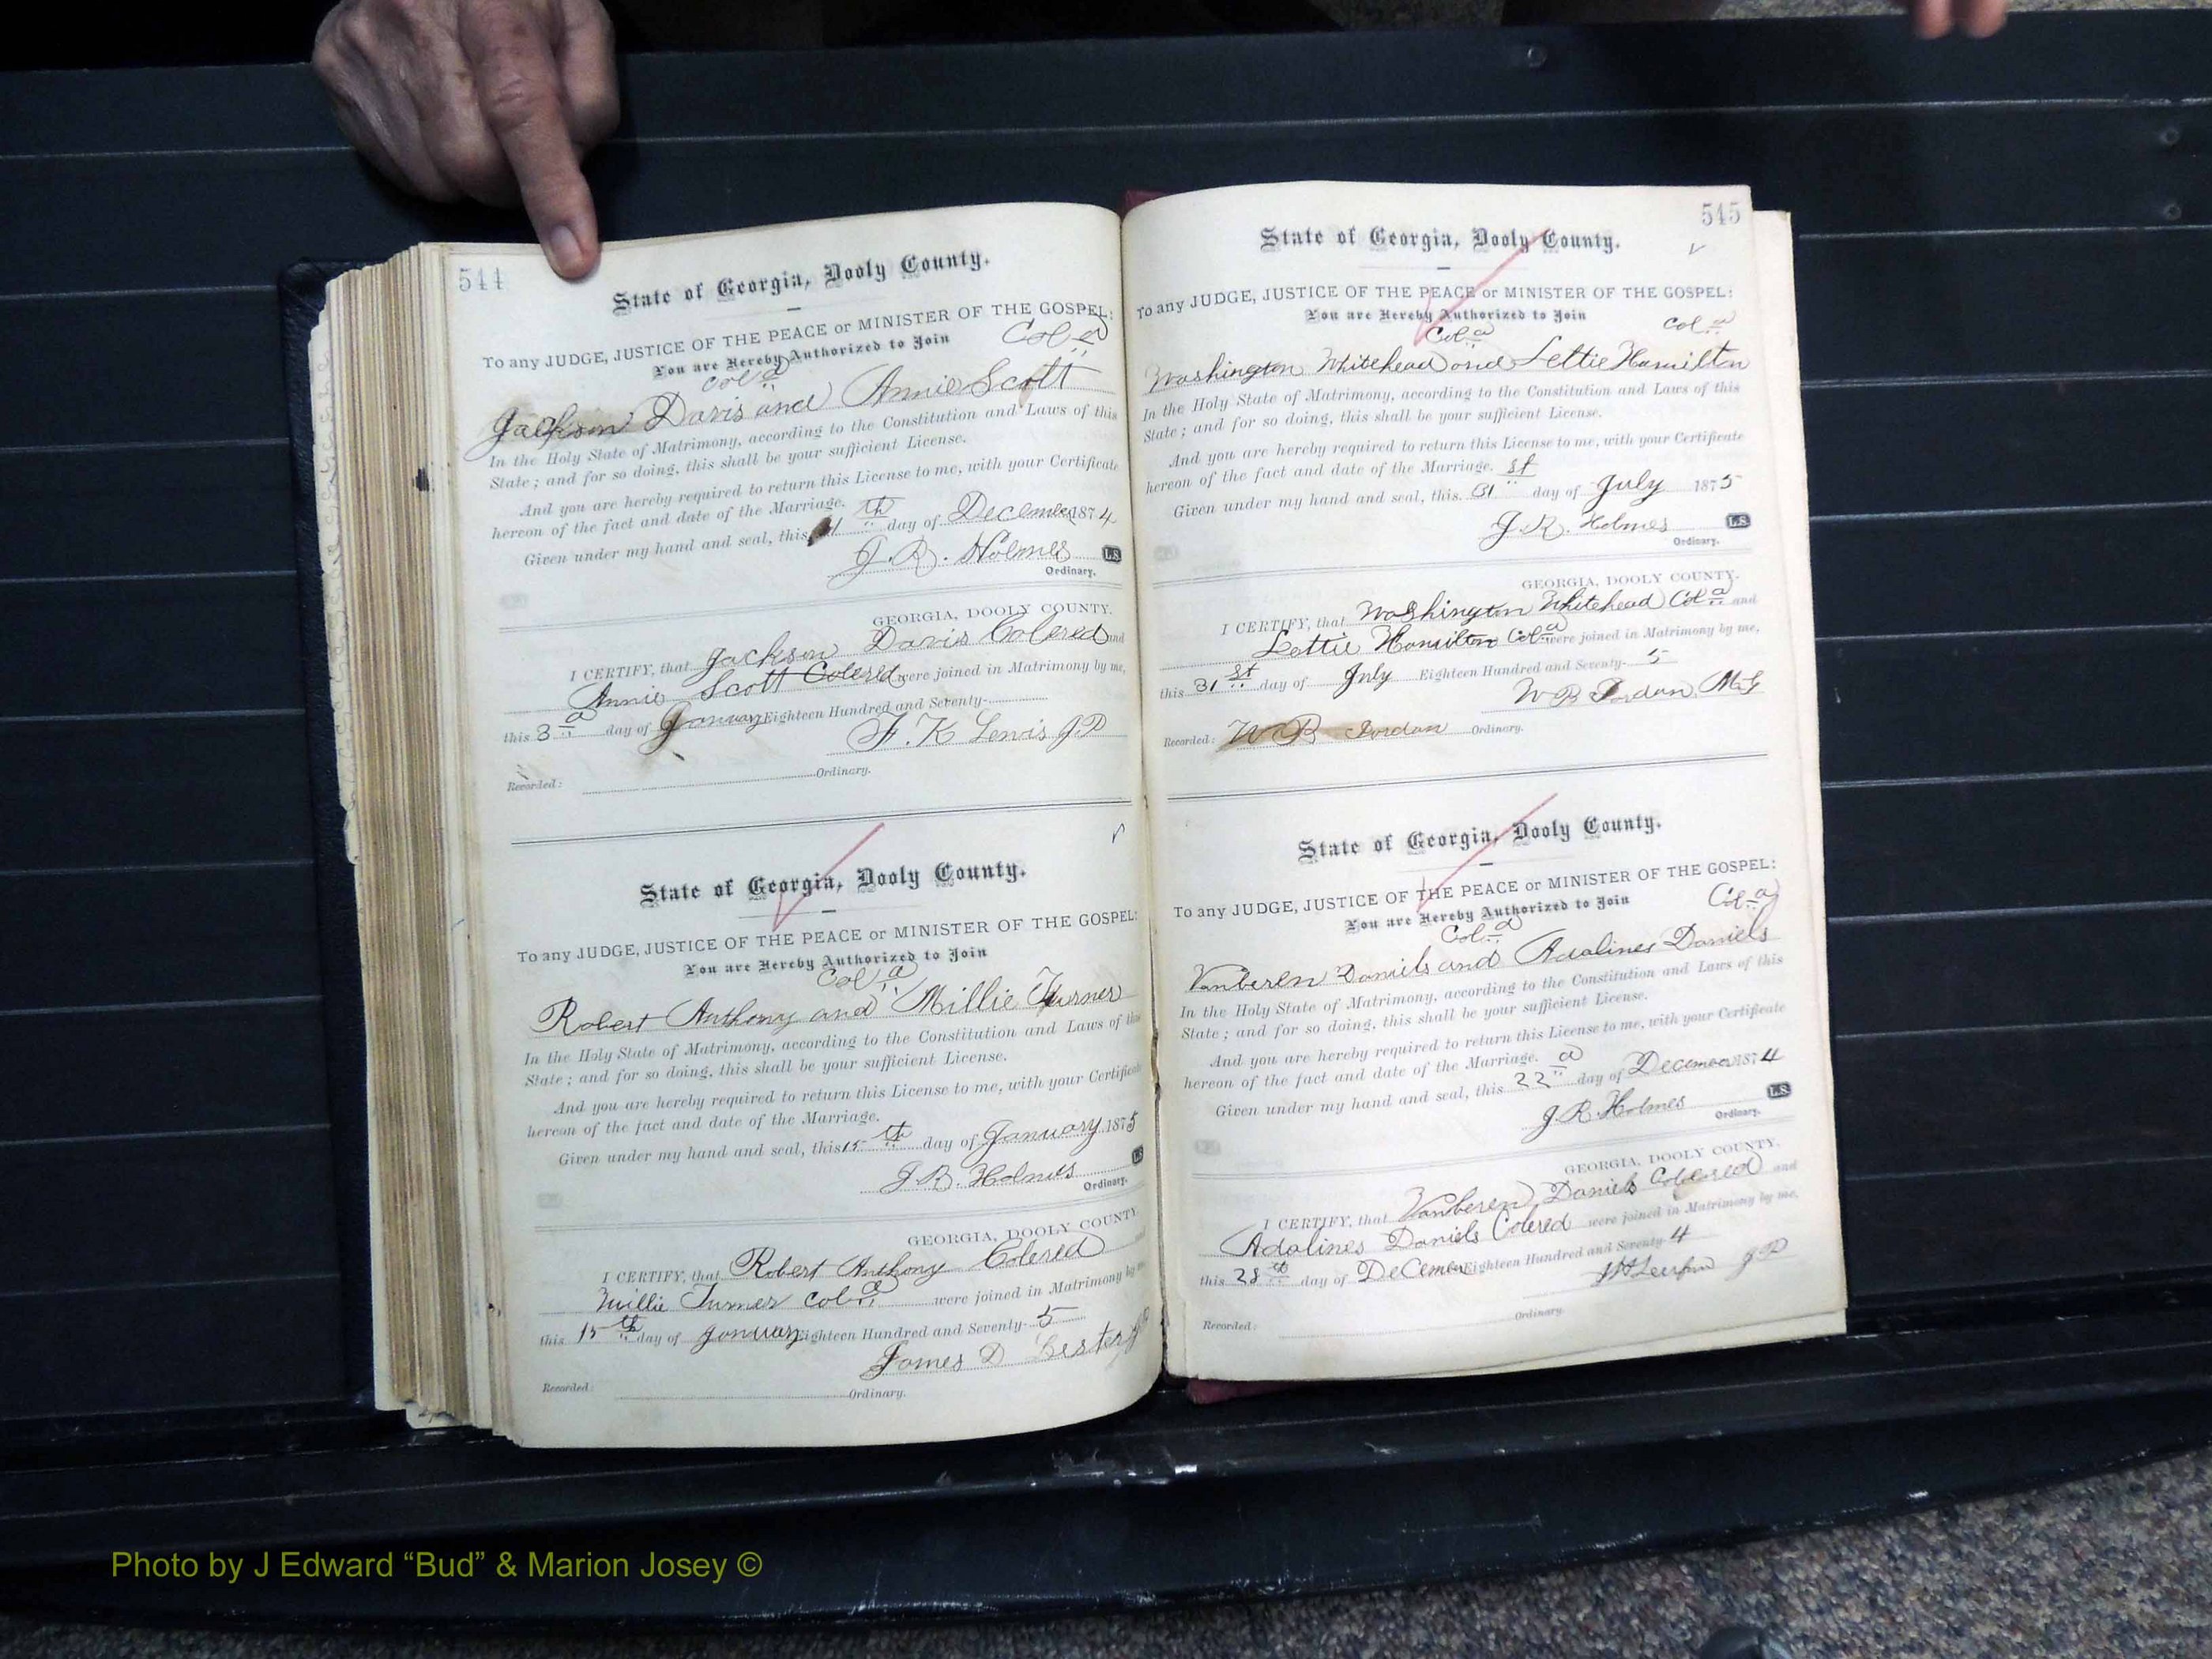 544
State of Georgia, Dooly County.
To any JUDGE, JUSTICE OF THE PEACE or MINISTER OF THE GOSPEL:
You are Hereby Authorized to Join
Col.d Col.d
Jackson Davis and Annie Scott
In the Holy State of Matrimony, according to the Constitution and Laws of this
State; and for so doing, this shall be your sufficient License.
And you are hereby required to return this License to me, with your Certificate
hereon of the fact and date of the Marriage.
Given under my hand and seal, this th day of December 1874
J. R. Holmes L.S.
Ordinary.
GEORGIA, DOOLY COUNTY.
I CERTIFY, that Jackson Davis Colered and
Annie Scott Colered were joined in Matrimony by me,
this 3d day of January Eighteen Hundred and Seventy-
F. K Lewis J.P
Recorded: Ordinary.
State of Georgia, Dooly County.
To any JUDGE, JUSTICE OF THE PEACE or MINISTER OF THE GOSPEL:
You are Hereby Authorized to Join
Col.d
Robert Anthony and Millie Turner
In the Holy State of Matrimony, according to the Constitution and Laws of this
State; and for so doing, this shall be your sufficient License.
And you are hereby required to return this License to me, with your Certificate
hereon of the fact and date of the Marriage.
Given under my hand and seal, this 15th day of January 1875
J. R. Holmes L.S
Ordinary.
GEORGIA, DOOLY COUNTY
I CERTIFY, that Robert Anthony Colered and
Millie Turner col.d were joined in Matrimony by me
this 15th day of January Eighteen Hundred and Seventy-5
James D Lester JP
Recorded: Ordinary.
545
State of Georgia, Dooly County.
To any JUDGE, JUSTICE OF THE PEACE or MINISTER OF THE GOSPEL:
You are Hereby Authorized to Join
Col.d Col.d
Washington Whitehead and Lettie Hamilton
In the Holy State of Matrimony, according to the Constitution and Laws of this
State; and for so doing, this shall be your sufficient License.
And you are hereby required to return this License to me, with your Certificate
hereon of the fact and date of the Marriage.
Given under my hand and seal, this 31st day of July 1875
J. R. Holmes L.S.
Ordinary.
GEORGIA, DOOLY COUNTY.
I CERTIFY, that Washington Whitehead Col.d and
Lettie Hamilton Col.d were joined in Matrimony by me,
this 31st day of July Eighteen Hundred and Seventy-5
W B Jordan, M.G
Recorded: W B Jordan Ordinary.
State of Georgia, Dooly County.
To any JUDGE, JUSTICE OF THE PEACE or MINISTER OF THE GOSPEL:
You are Hereby Authorized to Join
Col.d Col.d
Vanberen Daniels and Adalines Daniels
In the Holy State of Matrimony, according to the Constitution and Laws of this
State; and for so doing, this shall be your sufficient License.
And you are hereby required to return this License to me, with your Certificate
hereon of the fact and date of the Marriage.
Given under my hand and seal, this 22d day of December 1874
J. R. Holmes L.S.
Ordinary.
GEORGIA, DOOLY COUNTY.
I CERTIFY, that Vanberen Daniels Colered and
Adalines Daniels Colered were joined in Matrimony by me,
this 28th day of December Eighteen Hundred and Seventy-4
J P
Recorded: Ordinary.
Photo by J Edward “Bud” & Marion Josey ©